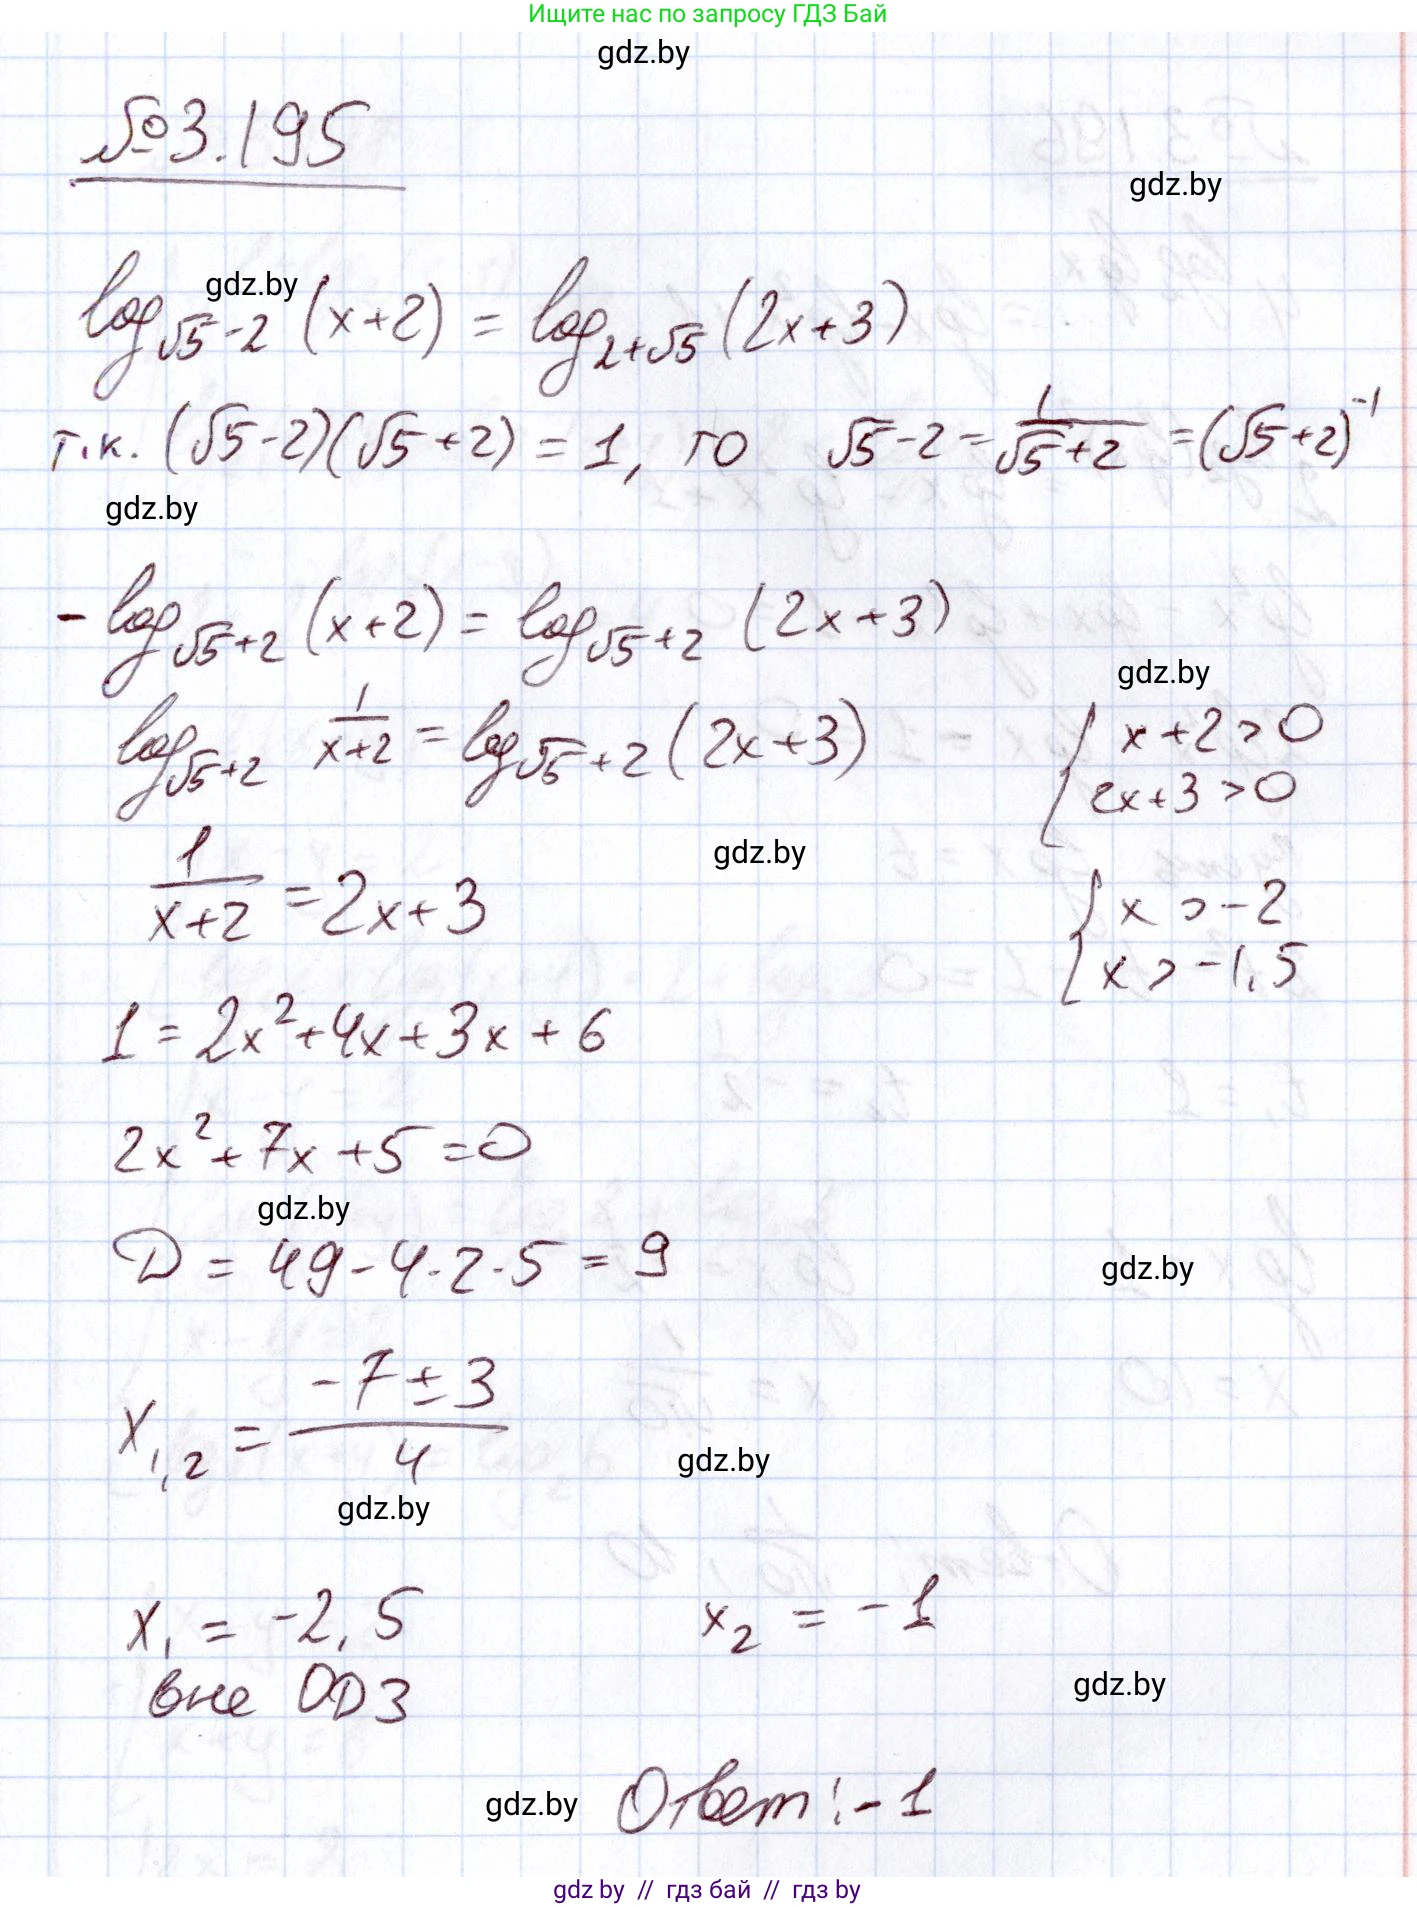 Ищите нас по запросу ГДЗ Бай
gdz.by
№3.195
gdz.by
gdz.by
log_{√5-2} (x+2) = log_{2+√5} (2x+3)
т.к. (√5-2)(√5+2) = 1, то √5-2 = 1/(√5+2) = (√5+2)^{-1}
gdz.by
-log_{√5+2} (x+2) = log_{√5+2} (2x+3)
gdz.by
log_{√5+2} 1/(x+2) = log_{√5+2} (2x+3)
{ x+2>0
2x+3>0
gdz.by
1/(x+2) = 2x+3
{ x > -2
x > -1,5
1 = 2x²+4x+3x+6
2x²+7x+5=0
gdz.by
D = 49-4·2·5 = 9
gdz.by
x_{1,2} = (-7±3)/4
gdz.by
gdz.by
x₁ = -2,5
x₂ = -1
вне ОДЗ
gdz.by
gdz.by
Ответ: -1
gdz by // гдз бай // гдз by